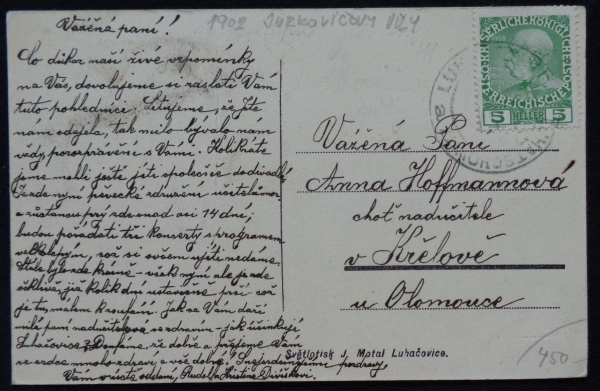 1902 JURKOVIČOVY VILY
Vážená paní!
Co důkaz naší živé vzpomínky
na Vás, dovolujeme si zaslati Vám
tuto pohlednici. Litujeme, že jste
nám odejela, tak milo bývalo nám
vždy porozprávěti s Vámi. Kolikráte
jsme mohli ještě jíti společně do divadla
Je zde nyní pěvecké sdružení učitelů mor.
a zůstanou prý zde snad asi 14 dní;
budou pořádati tři koncerty s programem
velkolepým, což si ovšem ujíti nedáme.
Stále bylo zde krásně – však nyní ale je zde
ošklivo, již kolik dní ustavičně prší, což
je to málem k zoufání. Jak se Vám daří
milá paní nadučitelova se zdravím – jak účinkují
Luhačovice? Doufáme, že dobře a přejeme Vám
ze srdce mnoho zdraví a vše dobré! Nejsrdečnějšími pozdravy
Vám v úctě oddaní, Rudolf a Kristina
KAISERLICHE KÖNIGLICHE
ÖSTERREICHISCHE POST
5 HELLER 5
Vážená Paní
Anna Hoffmannová
choť nadučitele
v Křelově
u Olomouce
Světlotisk J. Motal Luhačovice.
450